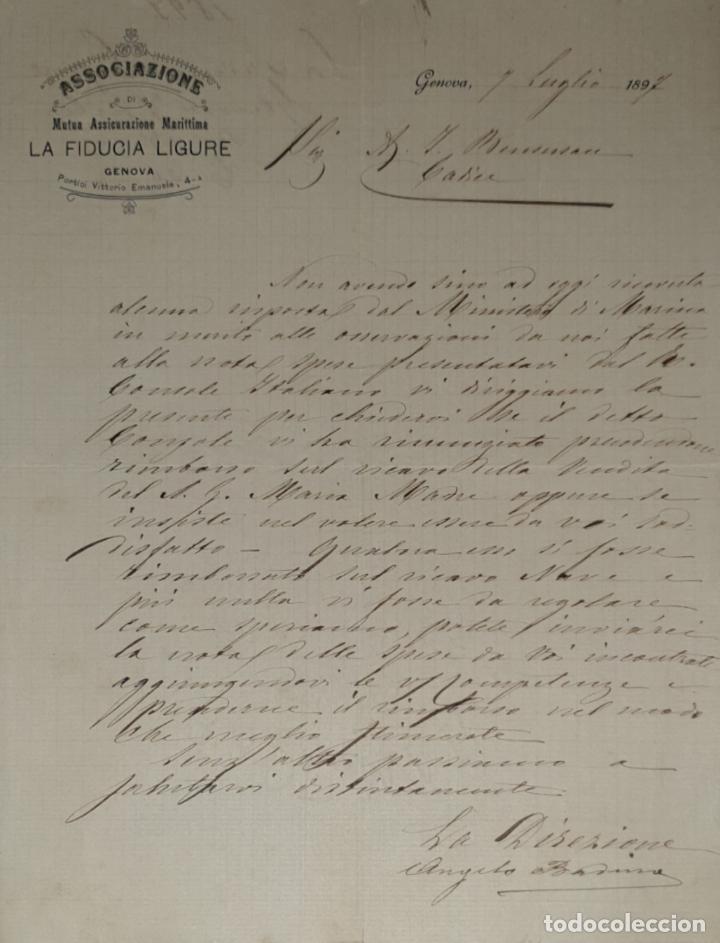 ASSOCIAZIONE
DI
Mutua Assicurazione Marittima
LA FIDUCIA LIGURE
GENOVA
Portici Vittorio Emanuele, 4-A
Genova, 7 Luglio 1897
Sig A. J. Bensusan
Cadice
Non avendo sino ad oggi ricevuta
alcuna risposta dal Ministero di Marina
in merito alle osservazioni da noi fatte
alla nota spese presentatavi dal R.
Console Italiano vi dirigiamo la
presente per chiedervi se il detto
Console vi ha rinunziato prendendone
rimborso sul ricavo della vendita
del B. G. Maria Madre oppure se
insiste nel volere essere da voi sod-
disfatto - Qualora esso si fosse
rimborsato sul ricavo Nave e
più nulla vi fosse da regolare
come speriamo, potete inviarci
la nota delle spese da voi incontrate
aggiungendovi le vs/ competenze e
prenderne il rimborso nel modo
che meglio stimerete
Senz'altro passiamo a
salutarvi distintamente
La Direzione
Angelo
todocoleccion
todocoleccion.net